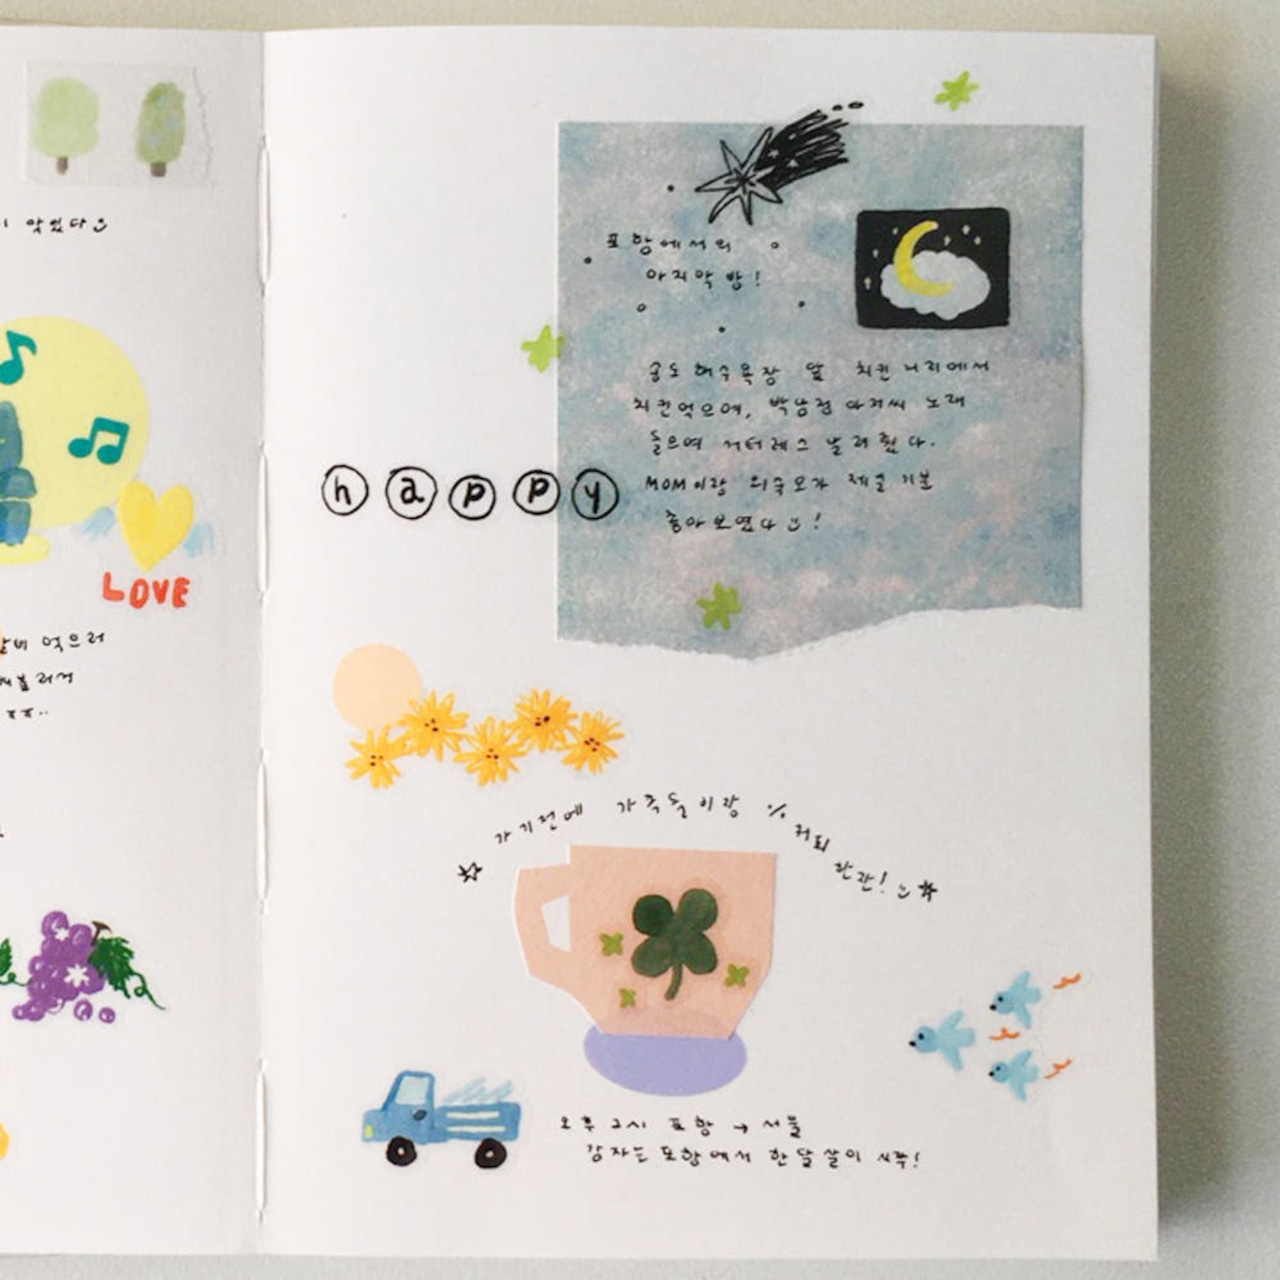 악었다
LOVE
먹으러
배불러서
ㅠㅠ..
포항에서의
마지막 밤!
해수욕장 앞 치킨 에서
치킨먹으며, 박남정 아저씨 노래
들으며 스 날려줬다.
MOM이랑 외숙모가 제일 기분
좋아보였다!
happy
가기전에 가족들이랑 % 커피 한잔!
오후 2시 포항 → 서울
감자는 포항에서 한달살이 시작!